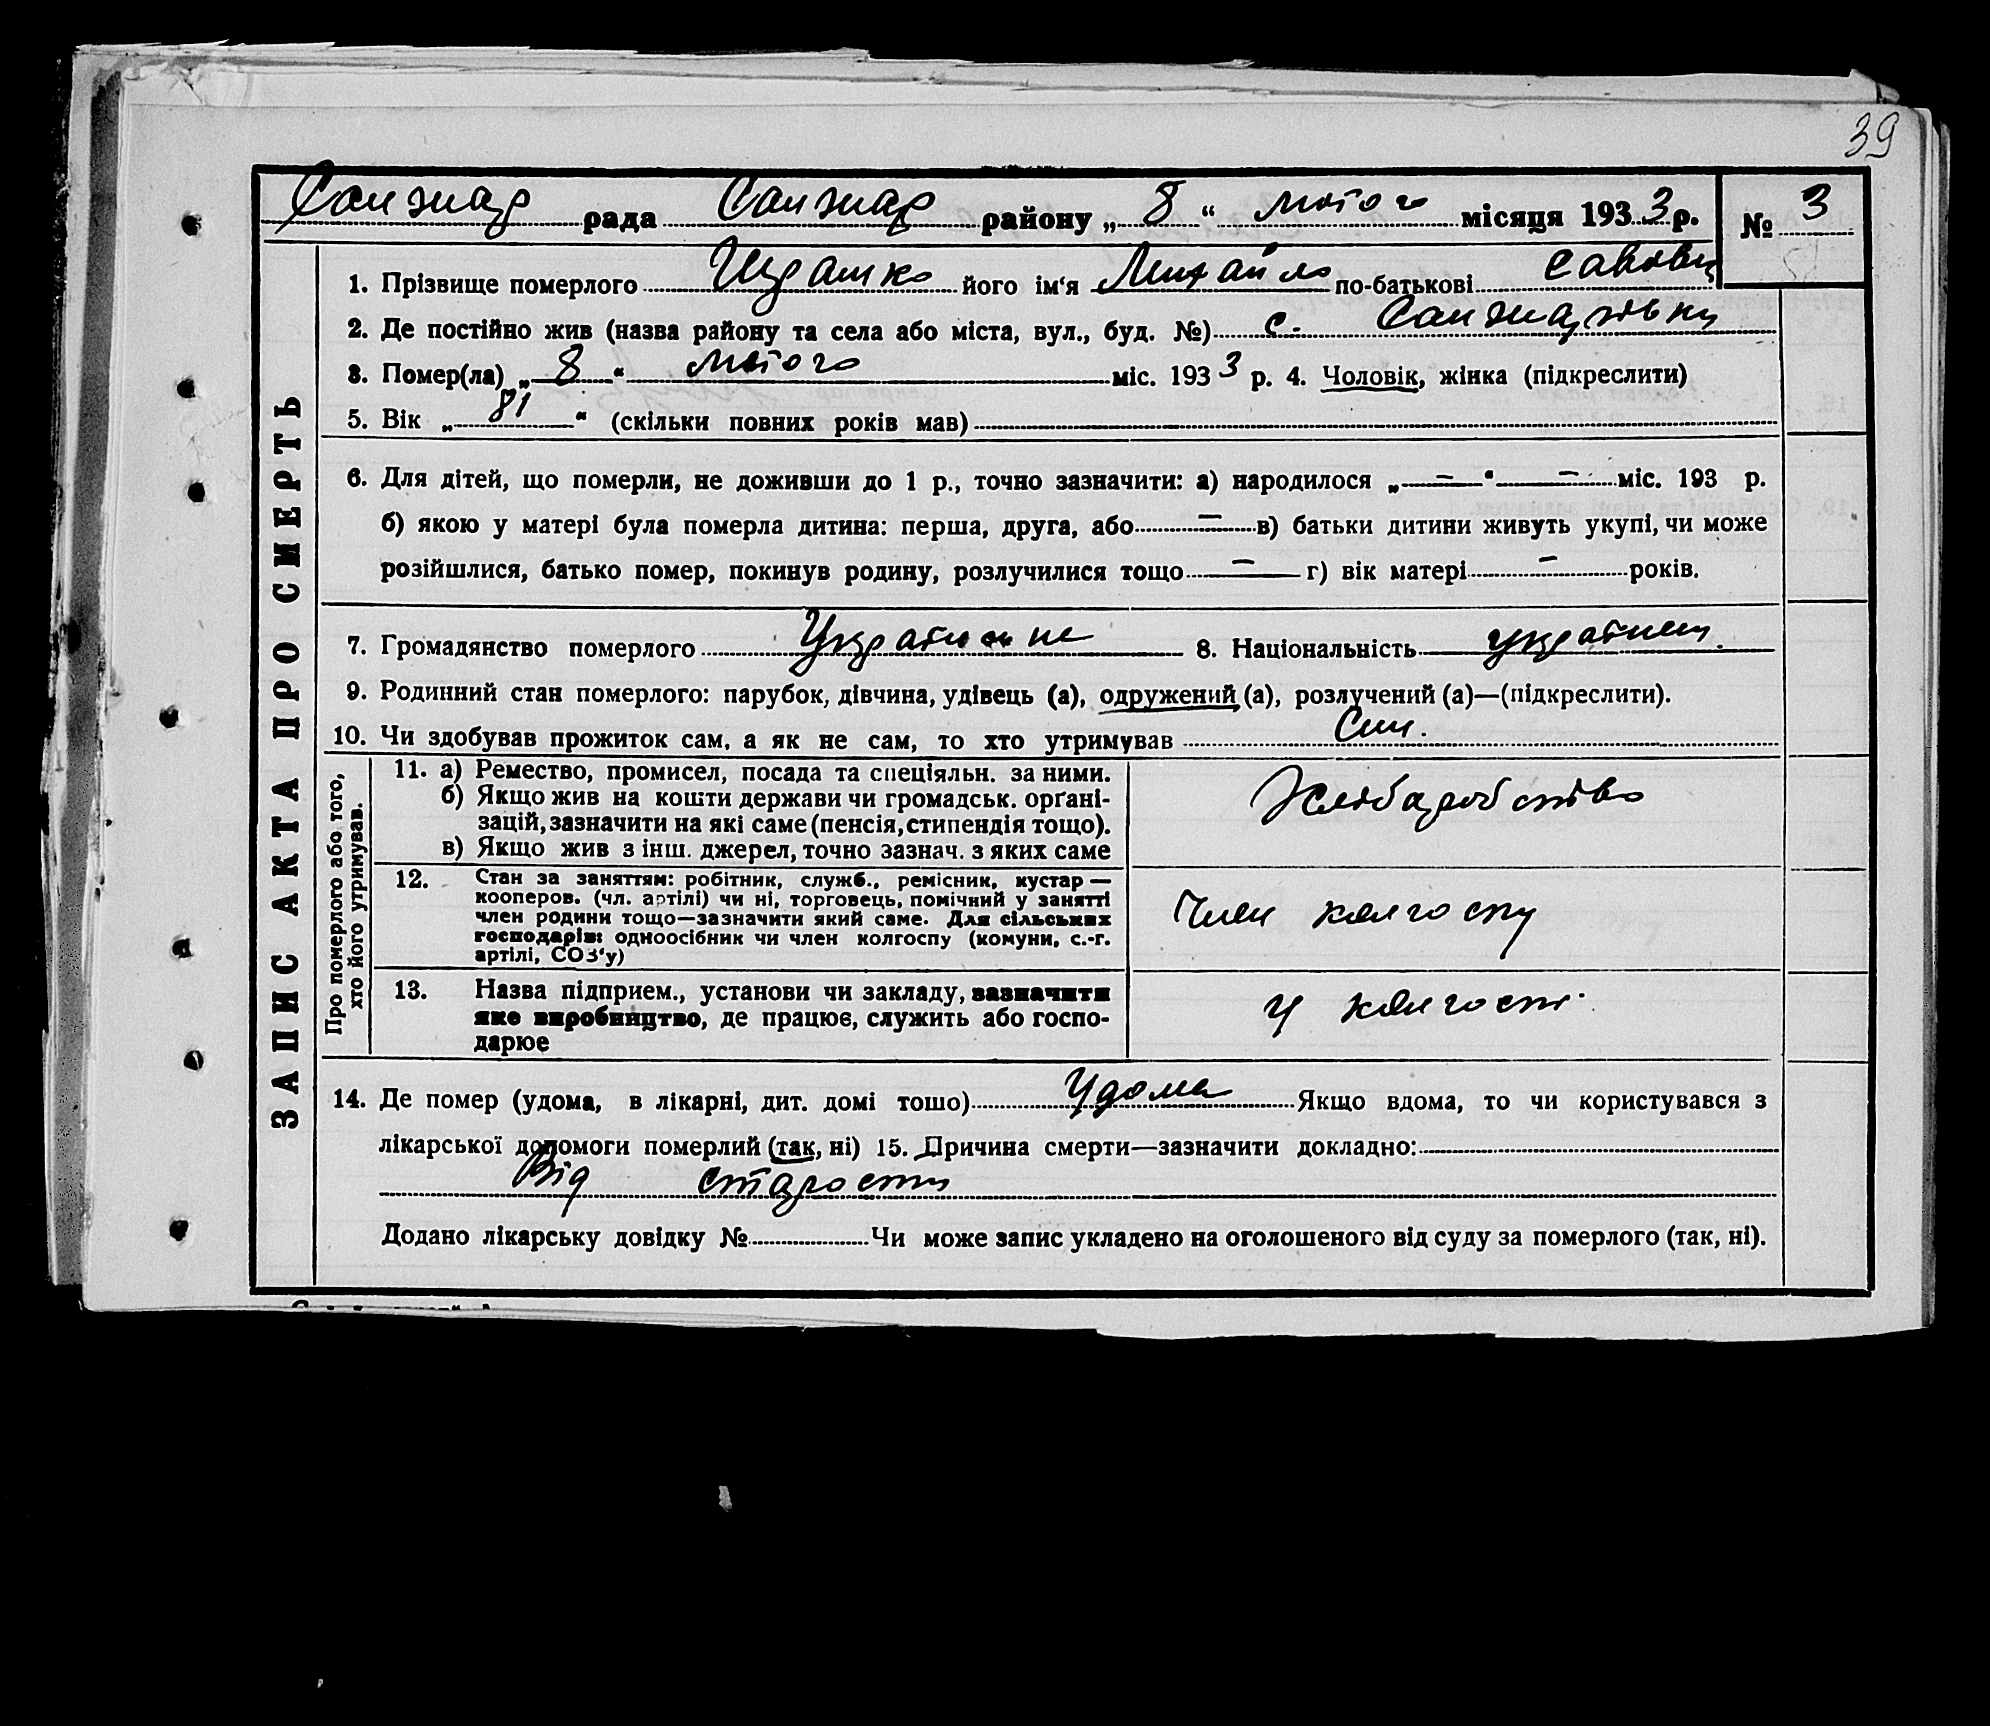 39
Санжар рада Санжар району „ 8 “ лютого місяця 1933 р. № 3
1. Прізвище померлого його ім‘я Михайло по-батькові Савович
2. Де постійно жив (назва району та села або міста, вул., буд. №) с.
3. Помер(ла) „ 8 “ лютого міс. 1933 р. 4. Чоловік, жінка (підкреслити)
5. Вік „ 81 “ (скільки повних років мав)
6. Для дітей, що померли, не доживши до 1 р., точно зазначити: а) народилося „ — “ — міс. 193 р.
б) якою у матері була померла дитина: перша, друга, або — в) батьки дитини живуть укупі, чи може
розійшлися, батько помер, покинув родину, розлучилися тощо — г) вік матері — років.
7. Громадянство померлого 8. Національність українец.
9. Родинний стан померлого: парубок, дівчина, удівець (а), одружений (а), розлучений (а)—(підкреслити).
10. Чи здобував прожиток сам, а як не сам, то хто утримував Син.
ЗАПИС АКТА ПРО СМЕРТЬ
Про померлого або того,
хто його утримував.
11. а) Ремество, промисел, посада та спеціяльн. за ними.
б) Якщо жив на кошти держави чи громадськ. орґані-
зацій, зазначити на які саме (пенсія, стипендія тощо).
в) Якщо жив з інш. джерел, точно зазнач. з яких саме
Хліборобство
12. Стан за заняттям: робітник, служб., ремісник, кустар —
кооперов. (чл. артілі) чи ні, торговець, помічний у занятті
член родини тощо—зазначити який саме. Для сільських
господарів: одноосібник чи член колгоспу (комуни, с.-г.
артілі, СОЗ‘у)
Член колгоспу
13. Назва підприєм., установи чи закладу, зазначити
яке виробництво, де працює, служить або госпо-
дарює
у колгоспі
14. Де помер (удома, в лікарні, дит. домі тошо) Удома Якщо вдома, то чи користувався з
лікарської допомоги померлий (так, ні) 15. Причина смерти—зазначити докладно:
Від старости
Додано лікарську довідку № Чи може запис укладено на оголошеного від суду за померлого (так, ні).